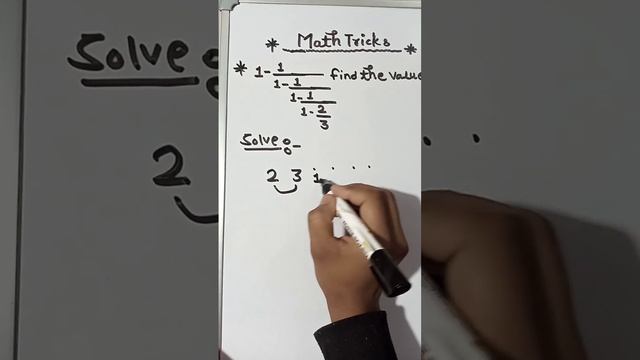 * Math Tricks *
* 1 - 1 find the value
1 - 1
1 - 1
1 - 2
3
Solve :-
2 3 1